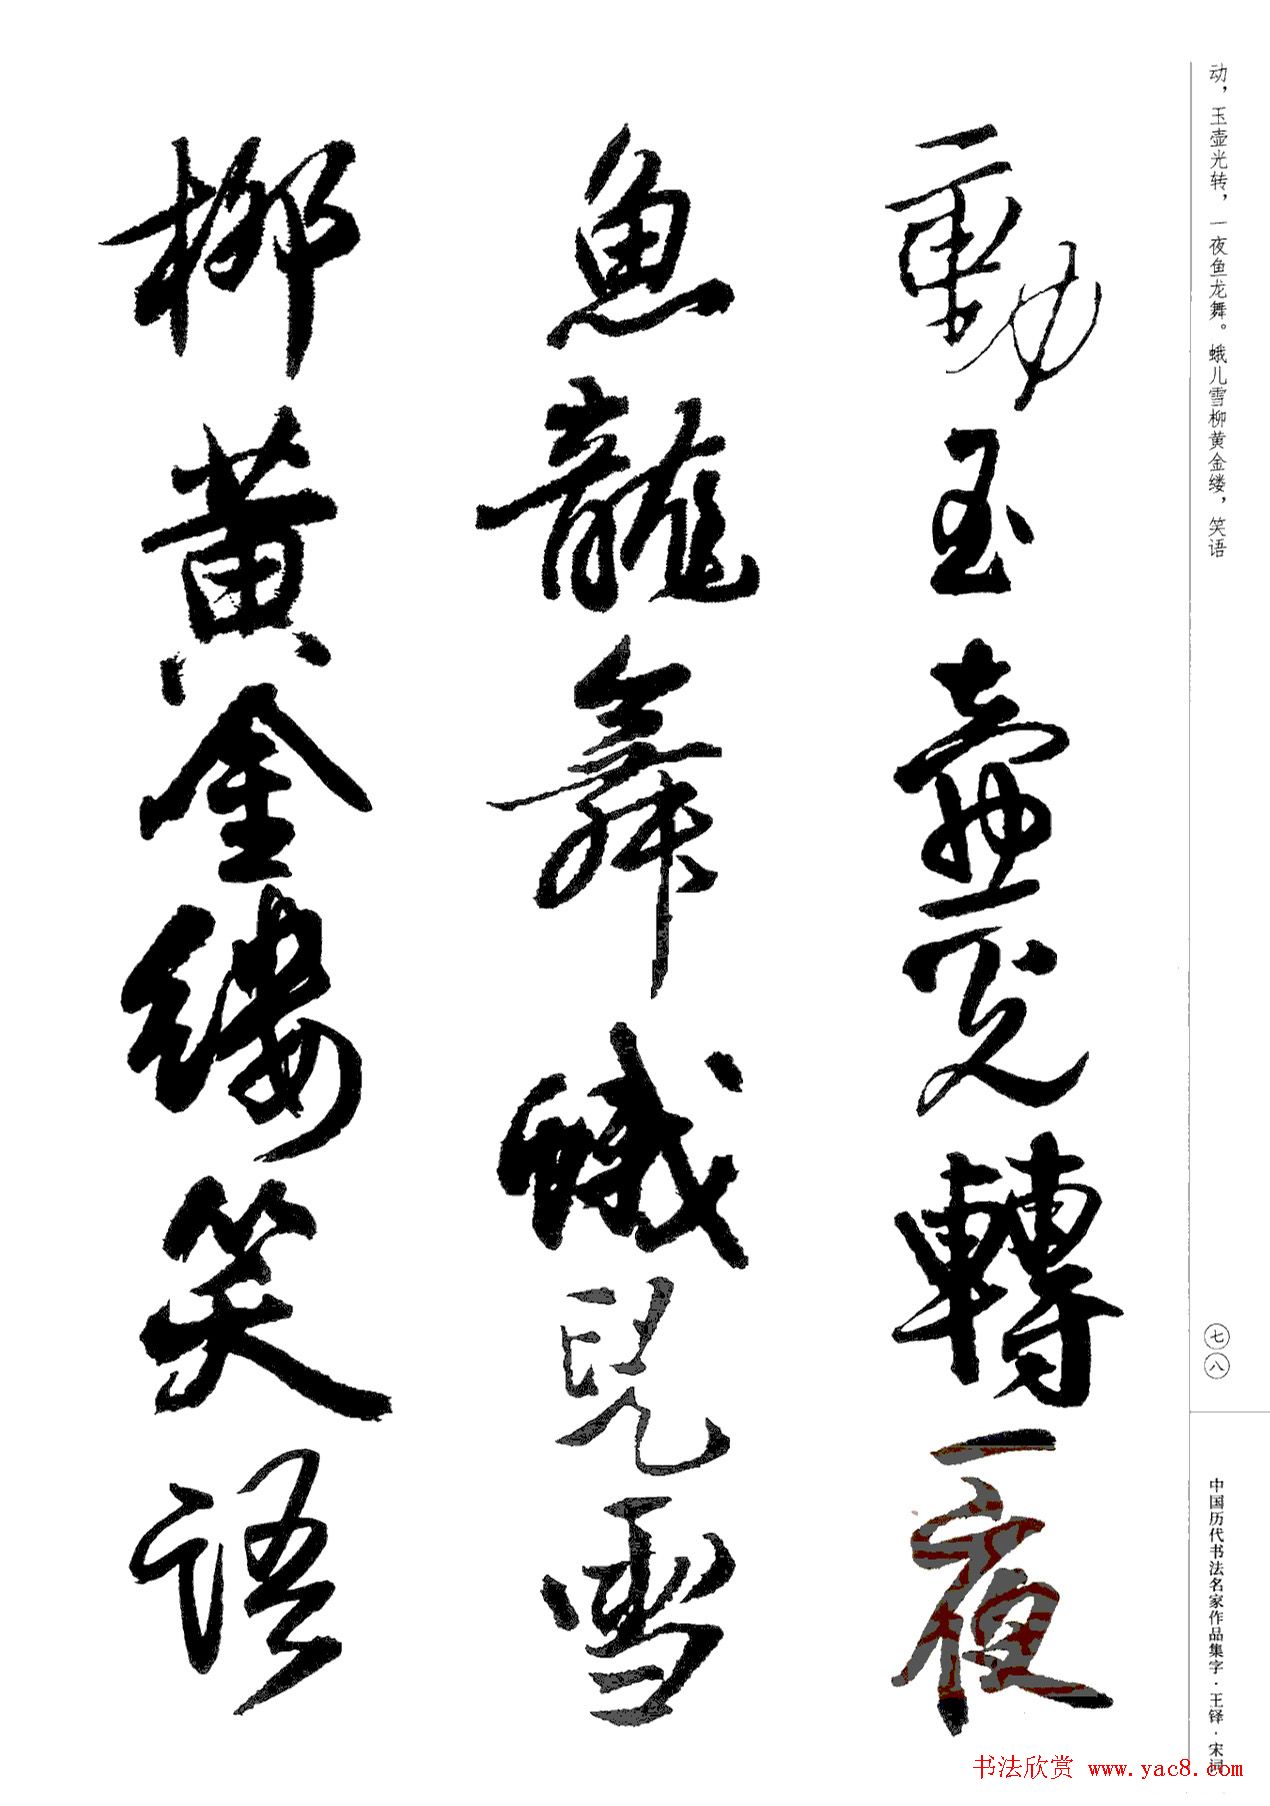 动，玉壶光转，一夜鱼龙舞。蛾儿雪柳黄金缕，笑语
動玉壺光轉一夜
魚龍舞蛾兒雪
柳黄金縷笑語
七八
中国历代书法名家作品集字·王铎·宋词
书法欣赏 www.yac8.com